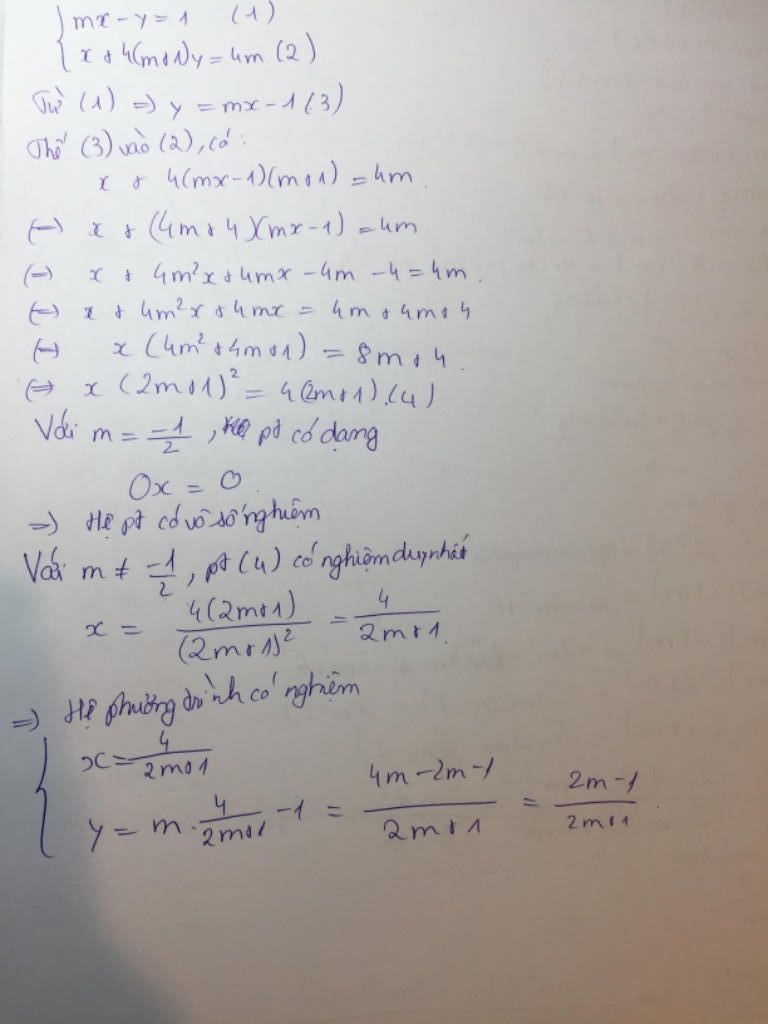 { mx - y = 1 (1)
x + 4(m+1)y = 4m (2)
Từ (1) => y = mx - 1 (3)
Thế (3) vào (2), có:
x + 4(mx-1)(m+1) = 4m.
(=) x + (4m+4)(mx-1) = 4m
(=) x + 4m²x + 4mx - 4m - 4 = 4m.
(=) x + 4m²x + 4mx = 4m + 4m + 4
(=) x (4m² + 4m + 1) = 8m + 4.
(=) x (2m+1)² = 4(2m+1).(4)
Với m = -1/2, pt có dạng
0x = 0.
=) Hệ pt có vô số nghiệm
Với m ≠ -1/2, pt (4) có nghiệm duy nhất
x = 4(2m+1)/(2m+1)² = 4/2m+1.
=) Hệ phương trình có nghiệm
{ x = 4/2m+1
y = m . 4/2m+1 - 1 = 4m-2m-1/2m+1 = 2m-1/2m+1.